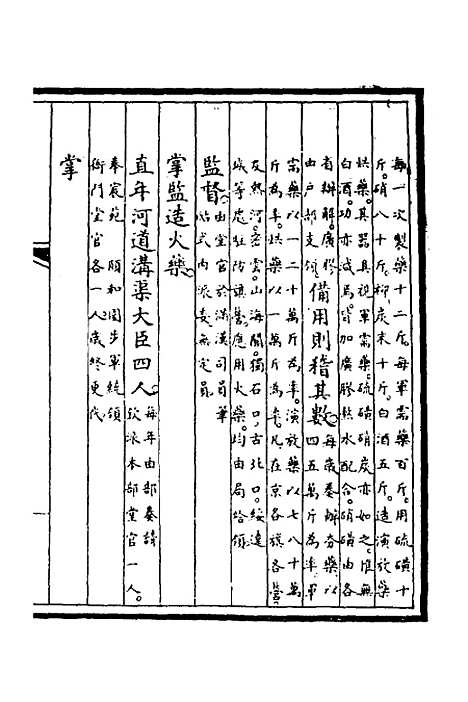 每一次製藥十二斤。每軍需藥百斤。用硫磺十
斤。硝八十斤。柳炭末十斤。白酒五斤。造演放藥
烘藥。其器具視軍需藥。硫磺硝炭亦如之。惟無
白酒。功亦減焉。皆加廣膠熬水配合。硝磺由各
省辦解。廣膠
由戶部支領。備用則稽其數。每歲奏辦夯藥以
四五萬斤為率。軍
需藥以一二十萬斤為率。演放藥以七八十萬
斤為率。烘藥以一萬斤為率。凡在京各旗各營
及熱河。密雲。山海關。獨石口。古北口。綏遠
城等處駐防旗營。應用火藥。均由局給領
監督。由堂官於滿漢司員筆
帖式內派委。無定員
掌監造火藥。
直年河道溝渠大臣四人。每年由部奏請
欽派本部堂官一人。
奉宸苑 頤和園步軍統領
衙門堂官各一人歲終更代
掌